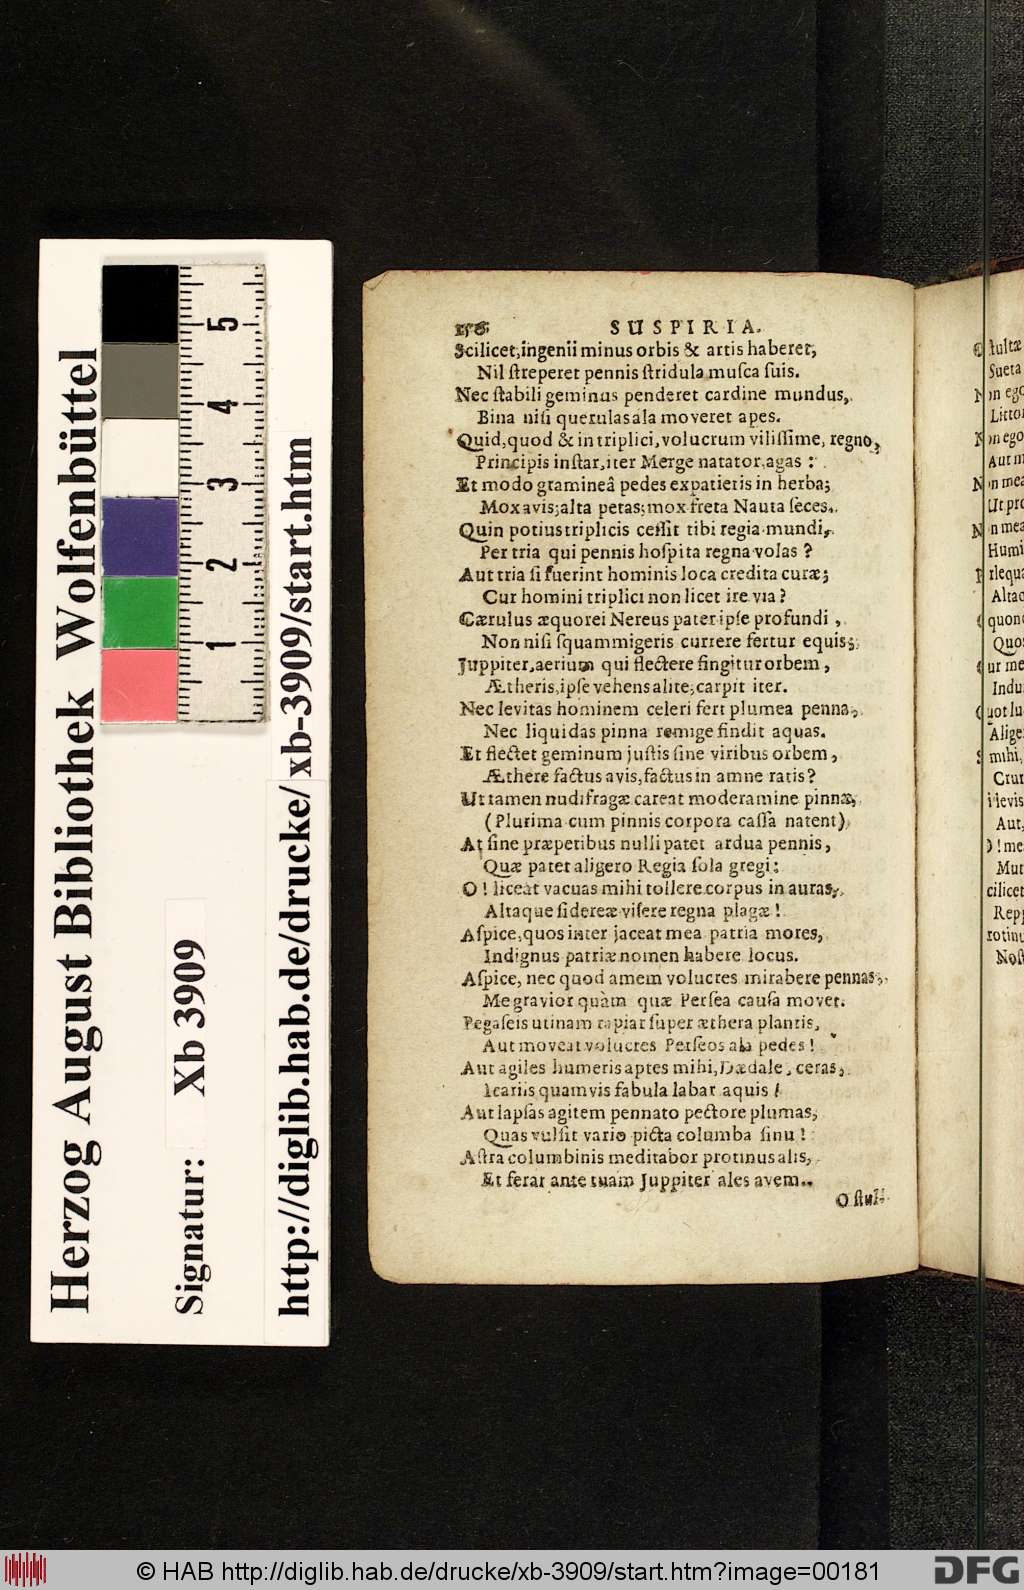 Herzog August Bibliothek Wolfenbüttel
Signatur: Xb 3909
http://diglib.hab.de/drucke/xb-3909/start.htm
1 2 3 4 5
156 SUSPIRIA.
Scilicet, ingenii minus orbis & artis haberet,
Nil ſtreperet pennis ſtridula muſca ſuis.
Nec ſtabili geminus penderet cardine mundus,
Bina niſi querulas ala moveret apes.
Quid, quod & in triplici, volucrum viliſſime, regno,
Principis inſtar, iter Merge natator, agas:
Et modo gramineâ pedes expatieris in herba;
Mox avis; alta petas; mox freta Nauta ſeces.
Quin potius triplicis ceſſit tibi regia mundi,
Per tria qui pennis hoſpita regna volas?
Aut tria ſi fuerint hominis loca credita curæ;
Cur homini triplici non licet ire via?
Cærulus æquorei Nereus pater ipſe profundi,
Non niſi ſquammigeris currere fertur equis;
Juppiter, aerium qui flectere fingitur orbem,
Ætheris, ipſe vehens alite, carpit iter.
Nec levitas hominem celeri fert plumea penna,
Nec liquidas pinna remige findit aquas.
Et flectet geminum juſtis ſine viribus orbem,
Æthere factus avis, factus in amne ratis?
Ut tamen nudifragæ careat moderamine pinnæ,
(Plurima cum pinnis corpora caſſa natent)
At ſine præpetibus nulli patet ardua pennis,
Quæ patet aligero Regia ſola gregi:
O! liceat vacuas mihi tollere corpus in auras,
Altaque ſidereæ viſere regna plagæ!
Aſpice, quos inter jaceat mea patria mores,
Indignus patriæ nomen habere locus.
Aſpice, nec quod amem volucres mirabere pennas;
Me gravior quàm quæ Perſea cauſa movet.
Pegaſeis utinam rapiar ſuper æthera plantis,
Aut moveat volucres Perſeos ala pedes!
Aut agiles humeris aptes mihi, Dædale, ceras,
Icariis quamvis fabula labar aquis!
Aut lapſas agitem pennato pectore plumas,
Quas vulſit vario picta columba ſinu!
Aſtra columbinis meditabor protinus alis,
Et ferar ante tuam Juppiter ales avem.
O ſtul-
ſtultæ
Sueta
on ego
Litto
on ego
Aut
on mea
Ut pr
on mea
Humi
Altac
quond
Quos
ur me
Indu
uot lu
Alige
mihi,
Crur
Aut,
O! me
Mut
cilicet
Rep
rotinu
Noſt
© HAB http://diglib.hab.de/drucke/xb-3909/start.htm?image=00181
DFG